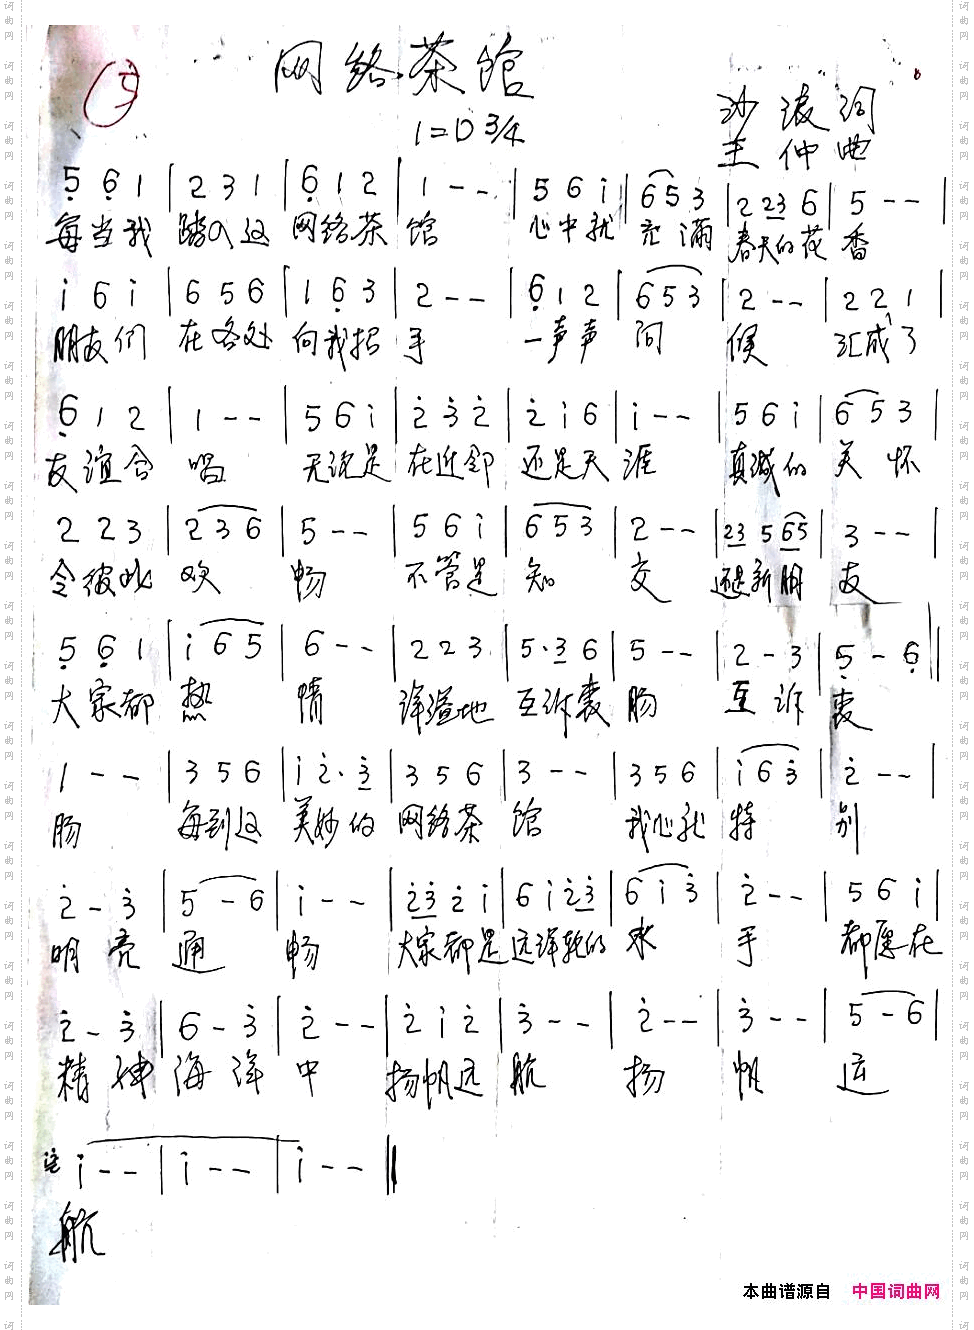 网络茶馆
1=D 3/4
沙浪词
王仲曲
5 6 1 | 2 3 1 | 6 1 2 | 1 - - | 5 6 i | 6 5 3 | 2 23 6 | 5 - - |
每当我 踏入这 网络茶 馆 心中就 充满 春天的花 香
i 6 i | 6 5 6 | 1 6 3 | 2 - - | 6 1 2 | 6 5 3 | 2 - - | 2 2 1
朋友们 在各处 向我招 手 一声声 问 候 汇成了
6 1 2 | 1 - - | 5 6 i | 2 3 2 | 2 i 6 | i - - | 5 6 i | 6 5 3 |
友谊合 唱 无论是 在近邻 还是天 涯 真诚的 关怀
2 2 3 | 2 3 6 | 5 - - | 5 6 i | 6 5 3 | 2 - - | 23 5 65 | 3 - - |
令彼此 欢 畅 不管是 知 交 还是新朋 友
5 6 1 | i 6 5 | 6 - - | 2 2 3 | 5 · 3 6 | 5 - - | 2 - 3 | 5 - 6 |
大家都 热 情 洋溢地 互诉衷 肠 互诉 衷
1 - - | 3 5 6 | i 2 · 3 | 3 5 6 | 3 - - | 3 5 6 | i 6 3 | 2 - - |
肠 每到这 美妙的 网络茶 馆 我心就 特 别
2 - 3 | 5 - 6 | i - - | 23 2 i | 6 i 23 | 6 i 3 | 2 - - | 5 6 i |
明亮 通 畅 大家都是 远洋轮的 水 手 都愿在
2 - 3 | 6 - 3 | 2 - - | 2 i 2 | 3 - - | 2 - - | 3 - - | 5 - 6 |
精神 海洋 中 扬帆远 航 扬 帆 远
i - - | i - - | i - - ‖
航
本曲谱源自 中国词曲网